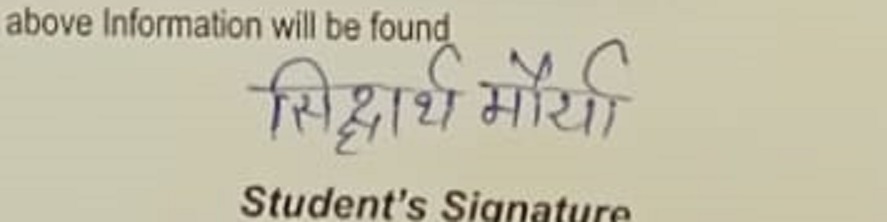 above Information will be found
सिद्धार्थ मौर्या
Student's Signature